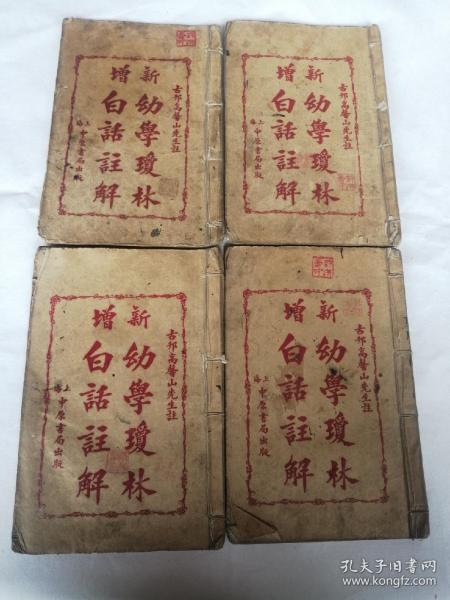 古邗高馨山先生註
新增
幼學瓊林
白話註解
上海中原書局出版
古邗高馨山先生註
新增
幼學瓊林
白話註解
上海中原書局出版
古邗高馨山先生註
新增
幼學瓊林
白話註解
上海中原書局出版
古邗高馨山先生註
新增
幼學瓊林
白話註解
上海中原書局出版
孔夫子旧书网
www.kongfz.com